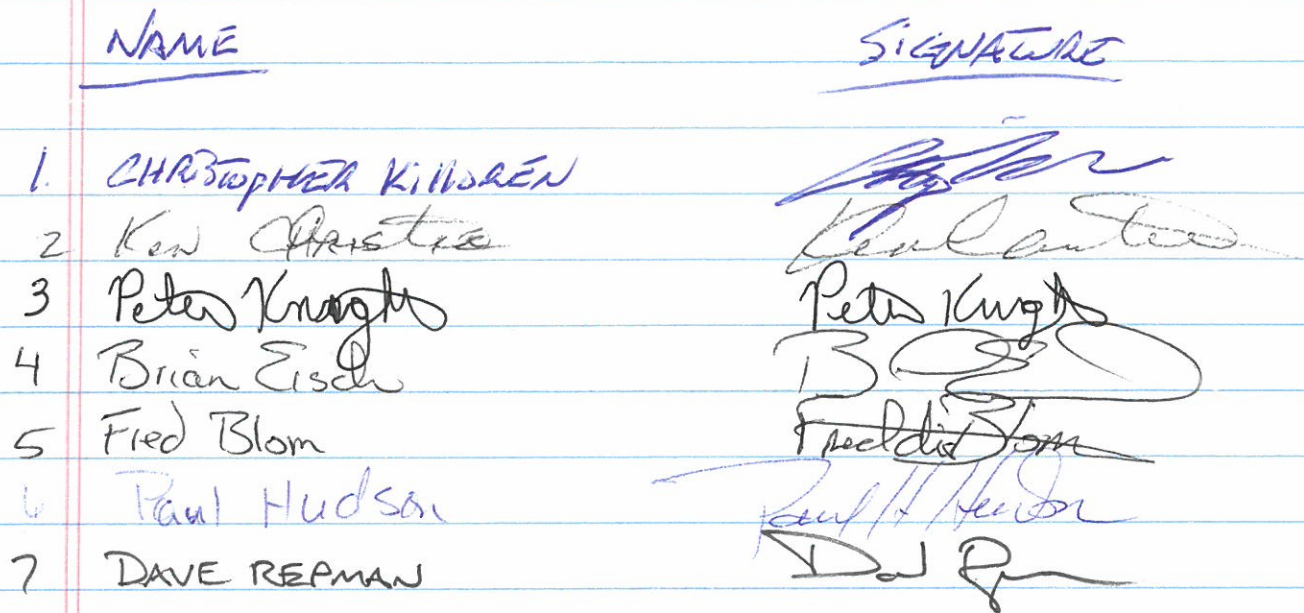 NAME SIGNATURE
1. CHRISTOPHER KILLOREN
2 Ken CHRISTIE
3 Peter Knight Peter Knight
4 Brian Eisch B
5 Fred Blom Freddie Blom
6 Paul Hudson Paul H Hudson
7 DAVE REPMAN